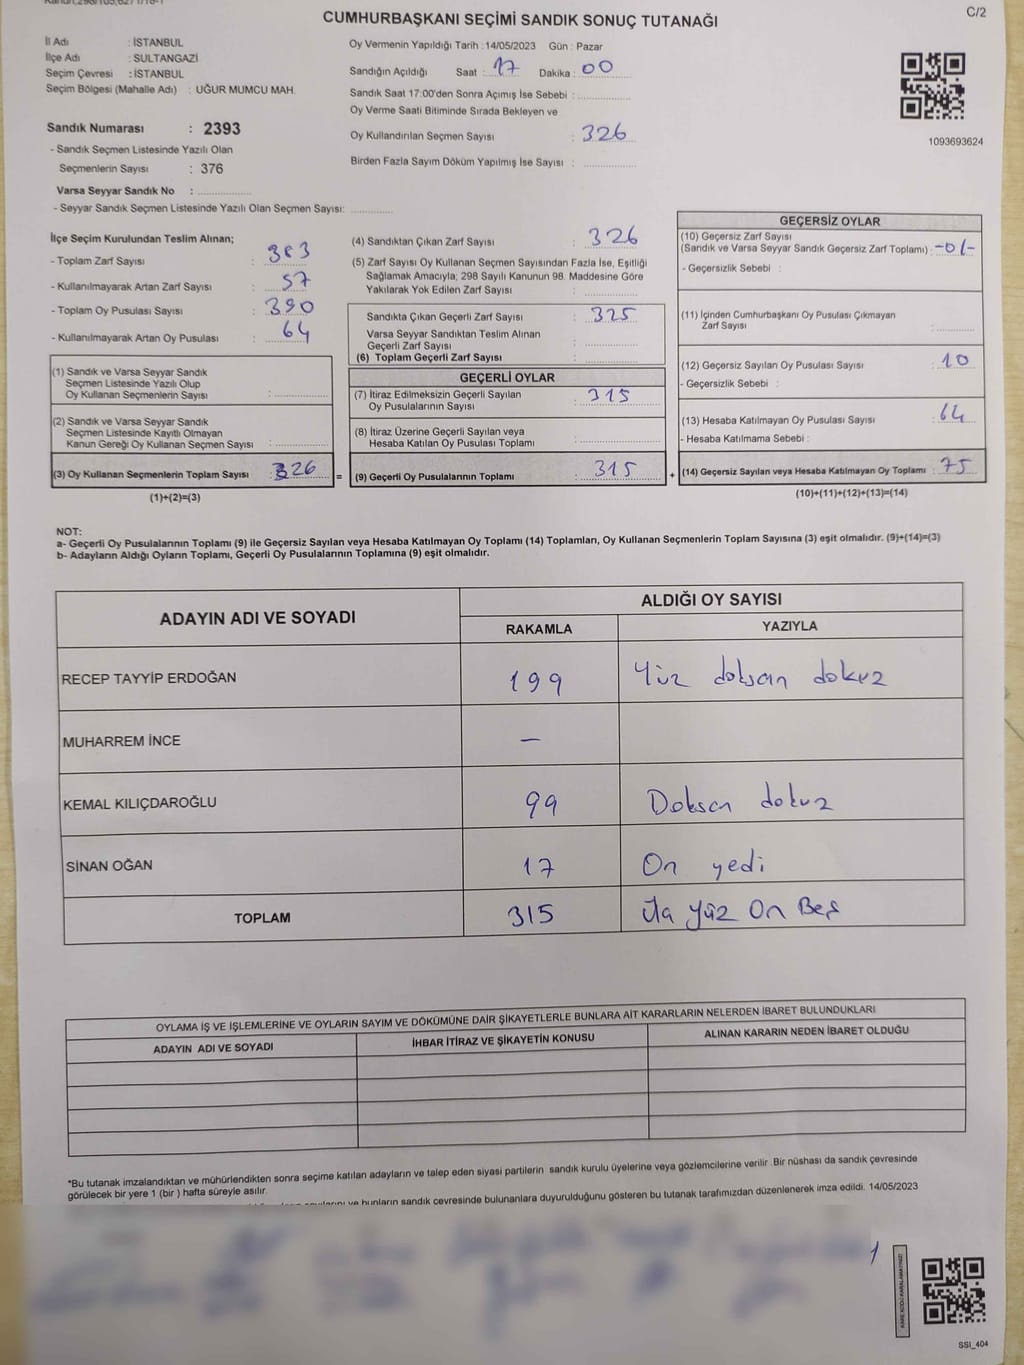 CUMHURBAŞKANI SEÇİMİ SANDIK SONUÇ TUTANAĞI
C/2
İl Adı : İSTANBUL
İlçe Adı : SULTANGAZİ
Seçim Çevresi : İSTANBUL
Seçim Bölgesi (Mahalle Adı) : UĞUR MUMCU MAH.
Sandık Numarası : 2393
- Sandık Seçmen Listesinde Yazılı Olan
Seçmenlerin Sayısı : 376
Varsa Seyyar Sandık No :
- Seyyar Sandık Seçmen Listesinde Yazılı Olan Seçmen Sayısı:
Oy Vermenin Yapıldığı Tarih : 14/05/2023 Gün : Pazar
Sandığın Açıldığı Saat : 17 Dakika : 00
Sandık Saat 17:00'den Sonra Açımış İse Sebebi :
Oy Verme Saati Bitiminde Sırada Bekleyen ve
Oy Kullandırılan Seçmen Sayısı : 326
Birden Fazla Sayım Döküm Yapılmış İse Sayısı :
1093693624
İlçe Seçim Kurulundan Teslim Alınan;
- Toplam Zarf Sayısı : 383
- Kullanılmayarak Artan Zarf Sayısı : 57
- Toplam Oy Pusulası Sayısı : 390
- Kullanılmayarak Artan Oy Pusulası : 64
(1) Sandık ve Varsa Seyyar Sandık
Seçmen Listesinde Yazılı Olup
Oy Kullanan Seçmenlerin Sayısı :
(2) Sandık ve Varsa Seyyar Sandık
Seçmen Listesinde Kayıtlı Olmayan
Kanun Gereği Oy Kullanan Seçmen Sayısı :
(3) Oy Kullanan Seçmenlerin Toplam Sayısı : 326 =
(1)+(2)=(3)
(4) Sandıktan Çıkan Zarf Sayısı : 326
(5) Zarf Sayısı Oy Kullanan Seçmen Sayısından Fazla İse, Eşitliği
Sağlamak Amacıyla; 298 Sayılı Kanunun 98. Maddesine Göre
Yakılarak Yok Edilen Zarf Sayısı :
Sandıkta Çıkan Geçerli Zarf Sayısı : 325
Varsa Seyyar Sandıktan Teslim Alınan
Geçerli Zarf Sayısı :
(6) Toplam Geçerli Zarf Sayısı :
GEÇERLİ OYLAR
(7) İtiraz Edilmeksizin Geçerli Sayılan
Oy Pusulalarının Sayısı : 315
(8) İtiraz Üzerine Geçerli Sayılan veya
Hesaba Katılan Oy Pusulası Toplamı :
(9) Geçerli Oy Pusulalarının Toplamı : 315 +
GEÇERSİZ OYLAR
(10) Geçersiz Zarf Sayısı
(Sandık ve Varsa Seyyar Sandık Geçersiz Zarf Toplamı) : -01-
- Geçersizlik Sebebi :
(11) İçinden Cumhurbaşkanı Oy Pusulası Çıkmayan
Zarf Sayısı :
(12) Geçersiz Sayılan Oy Pusulası Sayısı : 10
- Geçersizlik Sebebi :
(13) Hesaba Katılmayan Oy Pusulası Sayısı : 64
- Hesaba Katılmama Sebebi :
(14) Geçersiz Sayılan veya Hesaba Katılmayan Oy Toplamı : 75
(10)+(11)+(12)+(13)=(14)
NOT:
a- Geçerli Oy Pusulalarının Toplamı (9) ile Geçersiz Sayılan veya Hesaba Katılmayan Oy Toplamı (14) Toplamları, Oy Kullanan Seçmenlerin Toplam Sayısına (3) eşit olmalıdır. (9)+(14)=(3)
b- Adayların Aldığı Oyların Toplamı, Geçerli Oy Pusulalarının Toplamına (9) eşit olmalıdır.
ADAYIN ADI VE SOYADI ALDIĞI OY SAYISI
RAKAMLA YAZIYLA
RECEP TAYYİP ERDOĞAN 199 Yüz doksan dokuz
MUHARREM İNCE —
KEMAL KILIÇDAROĞLU 99 Doksan dokuz
SİNAN OĞAN 17 On yedi
TOPLAM 315 Yüz On Beş
OYLAMA İŞ VE İŞLEMLERİNE VE OYLARIN SAYIM VE DÖKÜMÜNE DAİR ŞİKAYETLERLE BUNLARA AİT KARARLARIN NELERDEN İBARET BULUNDUKLARI
ADAYIN ADI VE SOYADI İHBAR İTİRAZ VE ŞİKAYETİN KONUSU ALINAN KARARIN NEDEN İBARET OLDUĞU
*Bu tutanak imzalandıktan ve mühürlendikten sonra seçime katılan adayların ve talep eden siyasi partilerin sandık kurulu üyelerine veya gözlemcilerine verilir. Bir nüshası da sandık çevresinde
görülecek bir yere 1 (bir ) hafta süreyle asılır.
ve bunların sandık çevresinde bulunanlara duyurulduğunu gösteren bu tutanak tarafımızdan düzenlenerek imza edildi. 14/05/2023
1
SSI_404